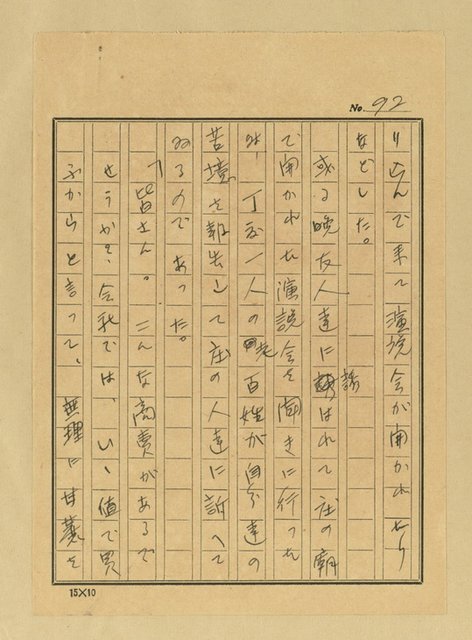 No. 92
り込んで来て演説会が開かれたり
などした。
或る晩友人達に誘はれて庄の廟
で開かれた演説会を聞きに行った
時、丁度一人の老百姓が自分達の
苦境を報告して庄の人達に訴へて
ゐるのであった。
「皆さん。こんな商売があるで
せうか、会社では、いゝ値で買
ふからと言って、無理に甘蔗を
15×10